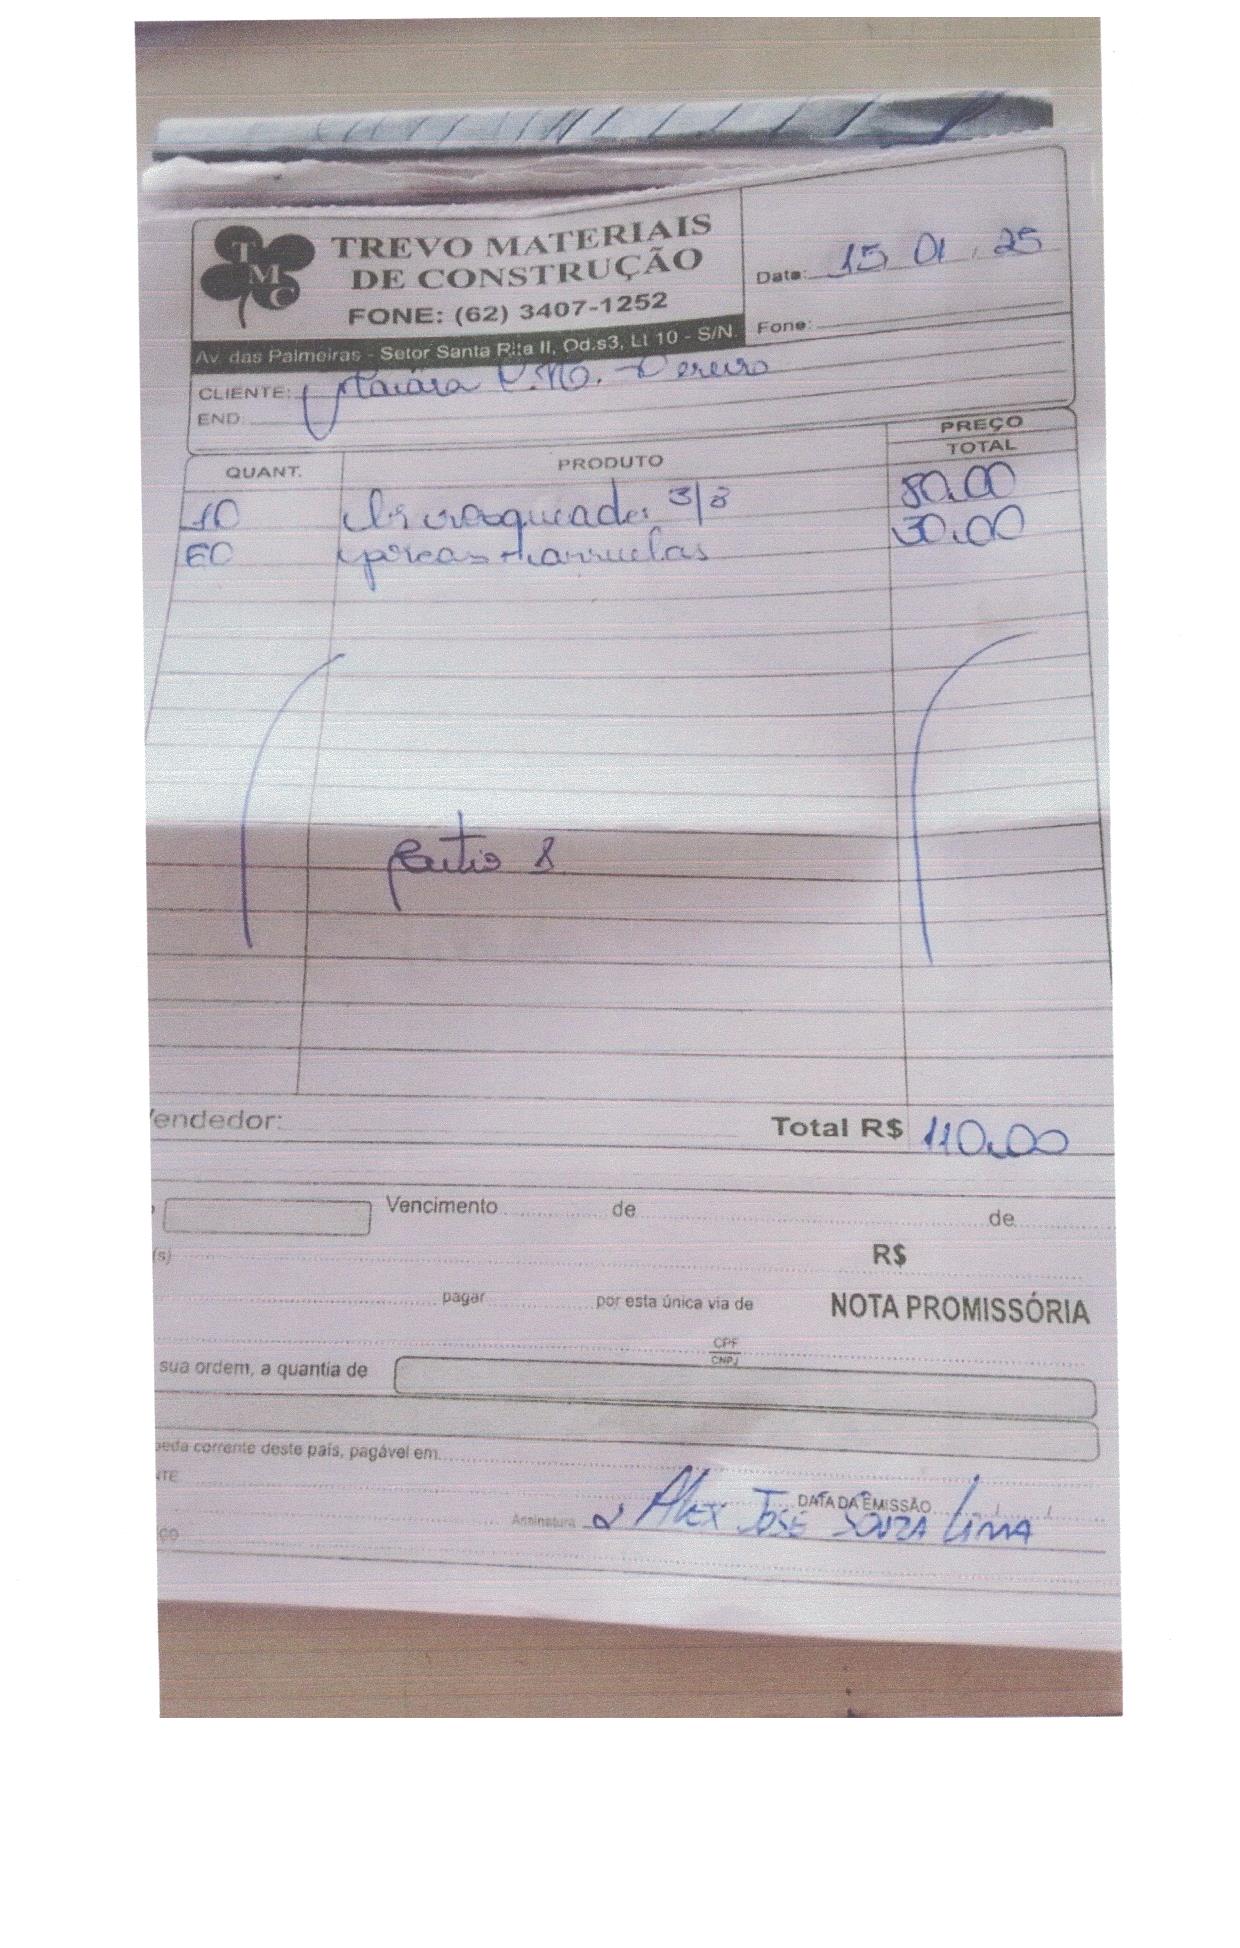 TMC
TREVO MATERIAIS
DE CONSTRUÇÃO
FONE: (62) 3407-1252
Av. das Palmeiras - Setor Santa Rita II, Qd.s3, Lt 10 - S/N.
Data: 15 01 25
Fone:
CLIENTE: Pereira
END:
QUANT. PRODUTO PREÇO TOTAL
10 rosqueada 3/8 80.00
60 porcas + arruelas 30.00
8
Vendedor: Total R$ 110.00
Vencimento de de
(s) R$
pagar por esta única via de NOTA PROMISSÓRIA
CPF
CNPJ
sua ordem, a quantia de
corrente deste país, pagável em
NTE
DATA DA EMISSÃO / /
Assinatura Alex José Souza Lima
ço